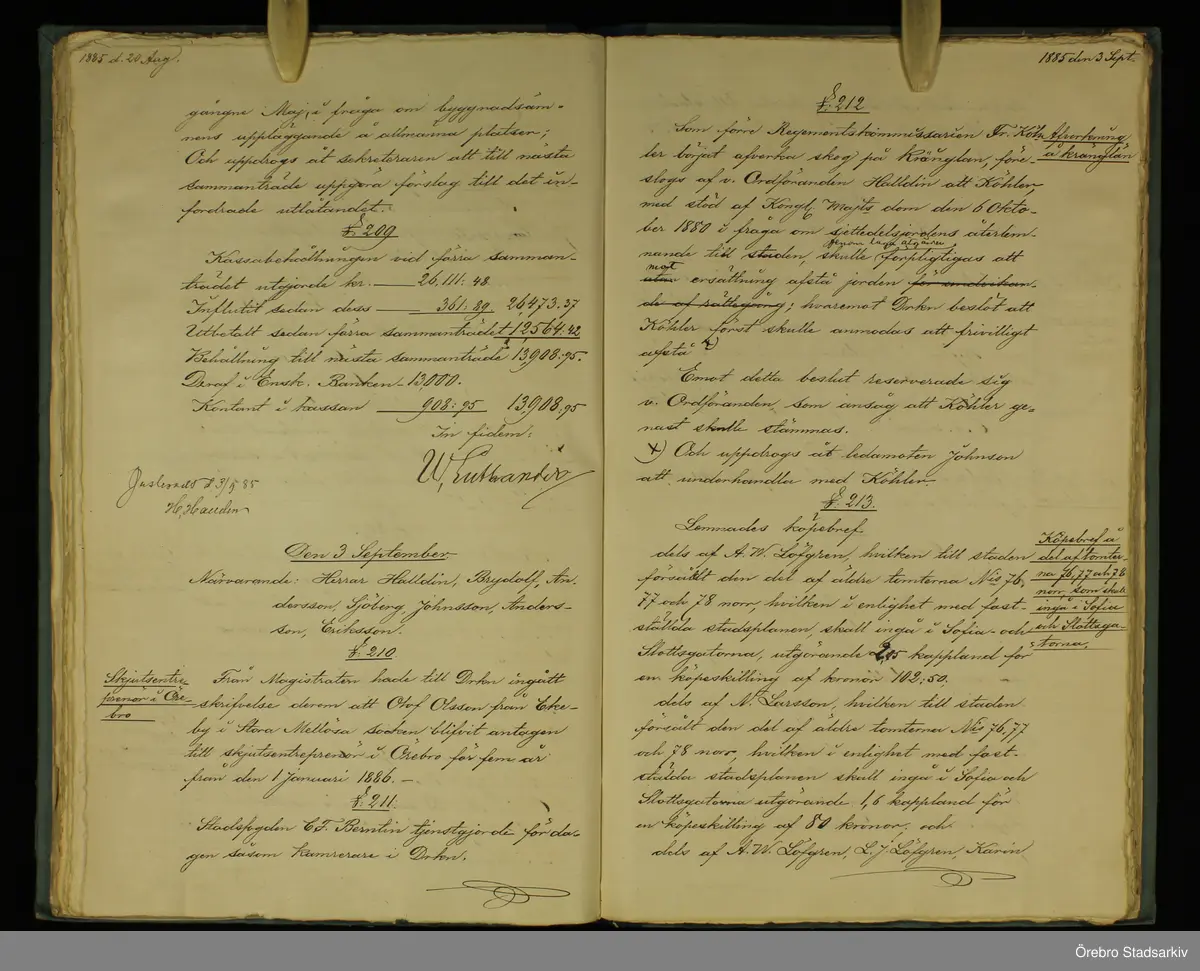 1885 d. 20 Aug.
gångne Maj, i fråga om byggnadsäm-
nens uppläggande å allmänna platser;
Och uppdrogs åt sekreteraren att till nästa
sammanträde uppgöra förslag till det in-
fordrade utlåtandet.
§ 209
Kassabehållningen vid förra samman-
trädet utgjorde kr. 26,111: 48.
Influtit sedan dess 361: 89. 26,473.37
Utbetalt sedan förra sammanträdet 12564.42
Behållning till nästa sammanträde 13,908.95.
Deraf i Ensk. Banken 13,000.
Kontant i kassan 908: 95 13,908.95
In fidem:
Justerad d. 3/9 85
H. Halldin
Den 3 September
Närvarande: Herrar Halldin, Brydolf, An-
dersson, Sjöberg, Johnsson, Anders-
son, Eriksson.
§ 210
Skjutsentre-
prenör i Öre-
bro
Från Magistraten hade till Drkn ingått
skrifvelse derom att Olof Olsson från Eke-
by i Stora Mellösa socken blifvit antagen
till skjutsentreprenör i Örebro för fem år
från den 1 Januari 1886. –
§ 211.
Stadsfogden C. F. Berntin tjenstgjorde för da-
gen såsom kamrerare i Drkn.
1885 den 3 Sept.
§ 212
Afverkning
å Kränglan
Som förre Regementskommissarien Fr. Köh-
ler börjat afverka skog på Krånglan, före-
slogs af v. Ordföranden Halldin att Köhler
med stöd af Kongl. Majts dom den 6 Okto-
ber 1880 i fråga om sjettedelsjordens återlem-
nande till staden, skulle genom laga åtgärder förpligtigas att
mot
utan ersättning afstå jorden för undvikan-
de af rättegång; hvaremot Drkn beslöt att
Köhler först skulle anmodas att frivilligt
afstå x)
Emot detta beslut reserverade sig
v. Ordföranden, som ansåg att Köhler ge-
nast skulle stämmas.
x) Och uppdrogs åt ledamoten Johnson
att underhandla med Köhler.
§ 213.
Köpebref å
del af tomter-
na 76, 77 och 78
norr, som skall
ingå i Sofia
och Slottsga-
torna.
Lemnades köpebref
dels af A. W. Löfgren, hvilken till staden
försålt den del af äldre tomterna Nis 76,
77 och 78 norr, hvilken i enlighet med fast-
ställda stadsplanen, skall ingå i Sofia- och
Slottsgatorna, utgörande 2,05 kappland för
en köpeskilling af kronor 102: 50.
dels af N. Larsson, hvilken till staden
försålt den del af äldre tomterna Nis 76, 77
och 78 norr, hvilken i enlighet med fast-
ställda stadsplanen skall ingå i Sofia och
Slottsgatorna utgörande 1,6 kappland för
en köpeskilling af 80 kronor, och
dels af A. W. Löfgren, L. J. Löfgren, Karin
Örebro Stadsarkiv